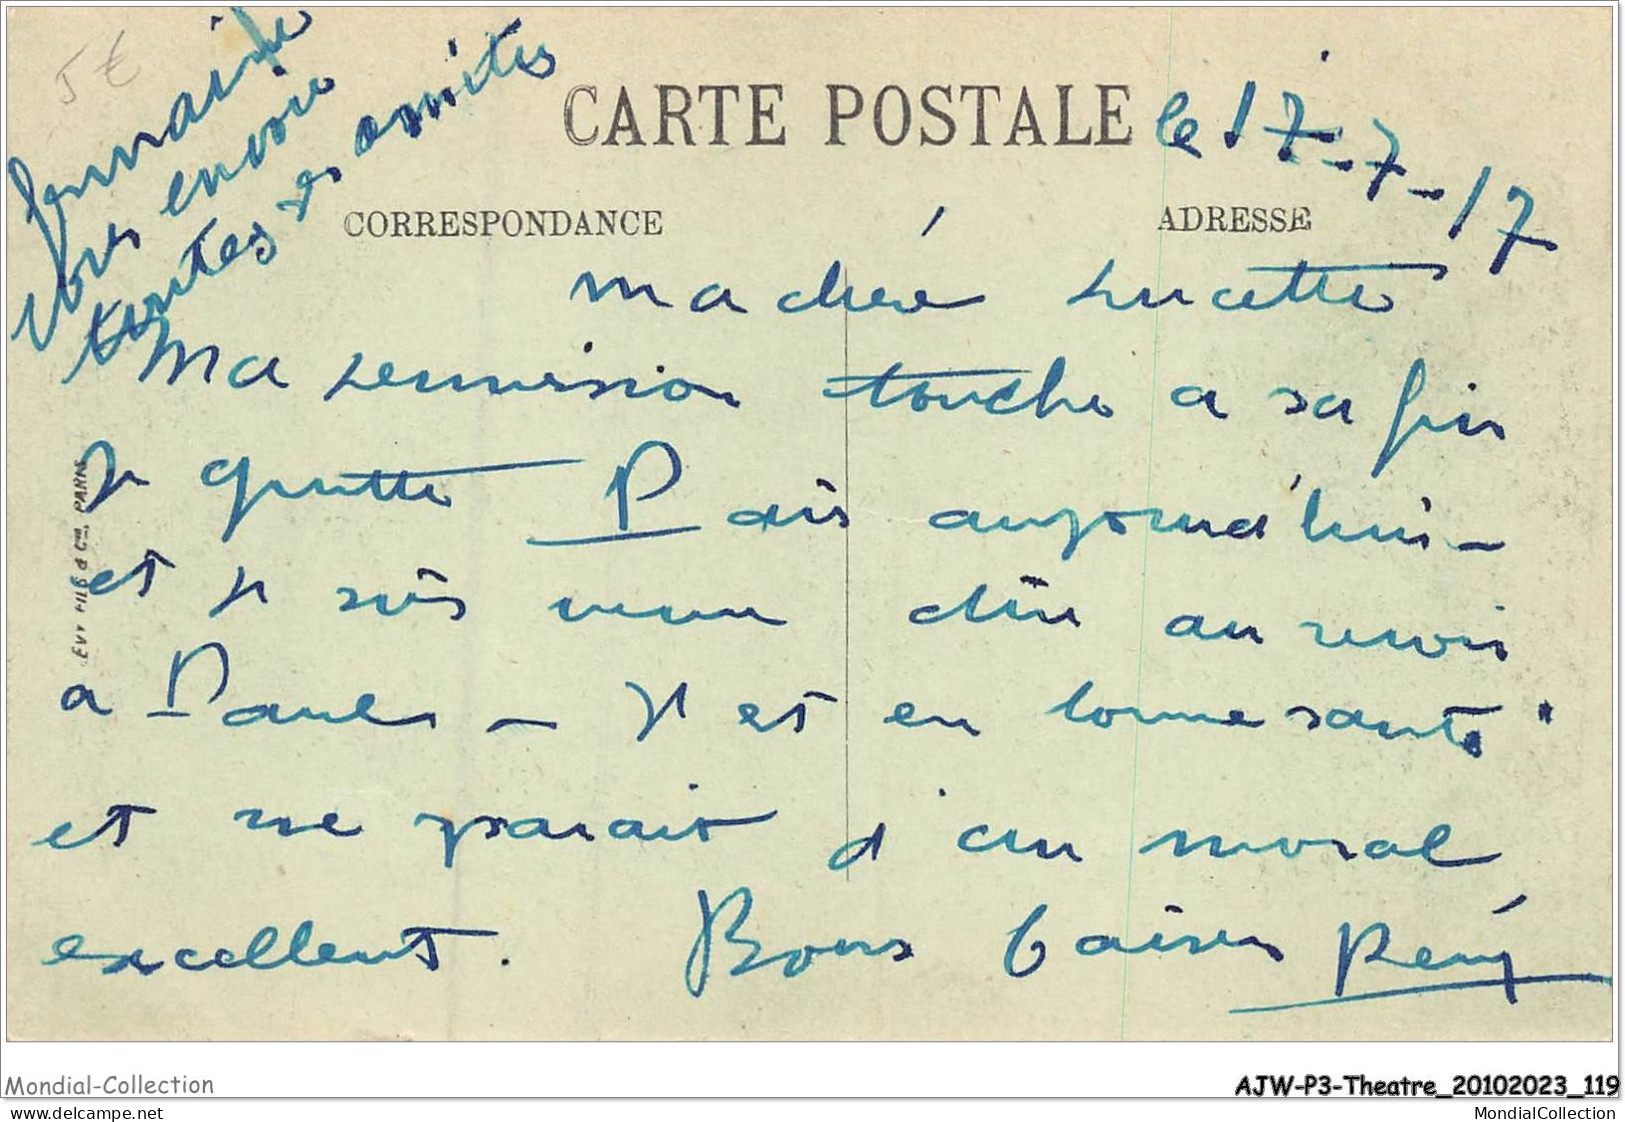 5 €
Germaine
vous envoie
toutes ses amitiés
CARTE POSTALE
le 17-7-17
CORRESPONDANCE
ADRESSE
Ma chère Lucette
Ma permission touche a sa fin
Je quitte Paris aujourd'hui -
et je suis venu dire au revoir
a Paul - Il est en bonne santé
et me parait d'un moral
excellent. Bons baisers René
LEVY FILS & Cie, PARIS
Mondial-Collection
AJW-P3-Theatre_20102023_119
www.delcampe.net
MondialCollection